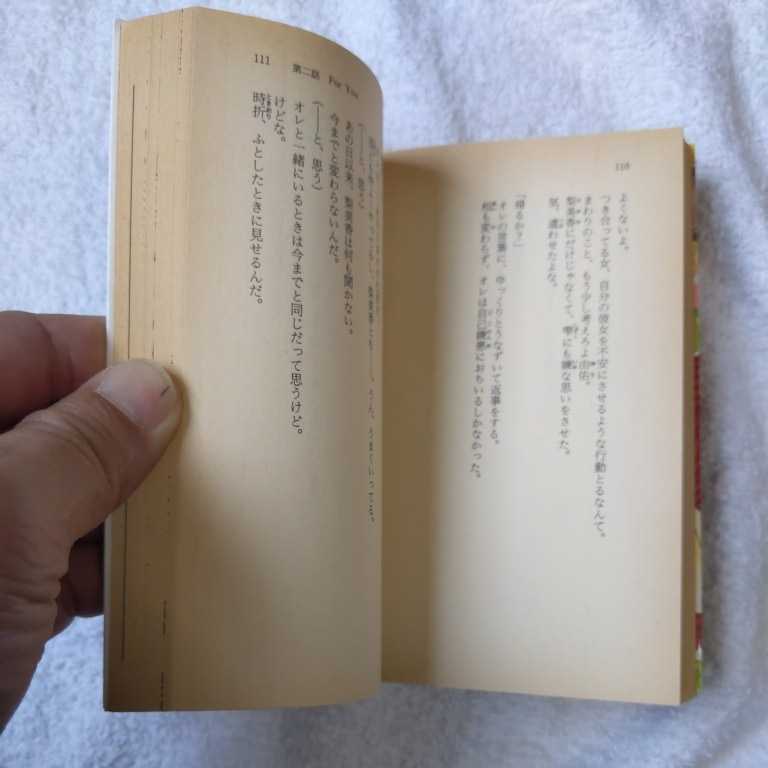 110
よくないよ。
つき合ってる女、自分の彼女を不安にさせるような行動とるなんて。
まわりのこと、もう少し考えろよ由佑。
梨美香にだけじゃなくて、雫にも嫌な思いをさせた。
気、遣わせたよな。
「帰るか?」
オレの言葉に、ゆっくりとうなずいて返事をする。
何も変わらず、オレは自己嫌悪におちいるしかなかった。
111 第二話 For You
梨美香とも——、うん、うまくいってる。
(——と、思う)
あの日以来、梨美香は何も聞かない。
今までと変わらないんだ。
(——と、思う)
オレと一緒にいるときは今までと同じだって思うけど。
けどな。
時折、ふとしたときに見せるんだ。